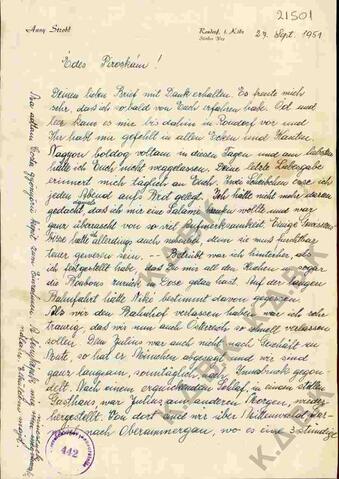 21501
Anny Strobl
Rondorf, b. Köln
27. Sept. 1951
Édes Piroskám!
Deinen lieben Brief mit Dank erhalten. Es freute mich
sehr, dass ich so bald von Euch erfahren habe. Öd und
leer kam es mir bis dahin in Rondorf vor und
Ihr habt mir gefehlt in allen Ecken und Kanten.
Nagyon boldog voltam in diesen Tagen und am liebsten
hätte ich Euch nicht weggelassen. Deine letzte Liebesgabe
erinnert mich täglich an Euch. Eure Leberkuchen esse ich
jeden Abend aufs Brot gelegt. Ich hätte nicht mehr daran
gedacht, dass ich mir eine Salami kaufen wollte und war
ganz überrascht von so viel Aufmerksamkeit. Einige Gewissens-
bisse hatte allerdings auch, denn sie muss furchtbar
teuer gewesen sein. Betrübt war ich hinterher, als
ich festgestellt habe, dass Ihr mir all den Kuchen sogar
die Bonbons zurück Dose getan habt. Auf der langen
Bahnfahrt hätte Niko bestimmt davon gegessen.
Als wir den Bahnhof verlassen haben, war ich sehr
traurig, dass wir nun auch Österreich so schnell verlassen
sollen. Den Julius war auch nicht nach Geschäft zu
Mute, so hat er München abgesagt und wir sind
ganz langsam, sonntäglich, nach Innsbruck gegon-
delt. Nach einem erquickenden Schlaf, in einem stillen
Gasthaus, war Julius am anderen Morgen, wieder
hergestellt. Von dort aus wir über Mittenwald, Gar-
misch nach Oberammergau, wo es eine 3 stündige
442
Κ.Δ.Β.Κ
Κ.Δ.Β.Κ
Κ.Δ.Β.Κ